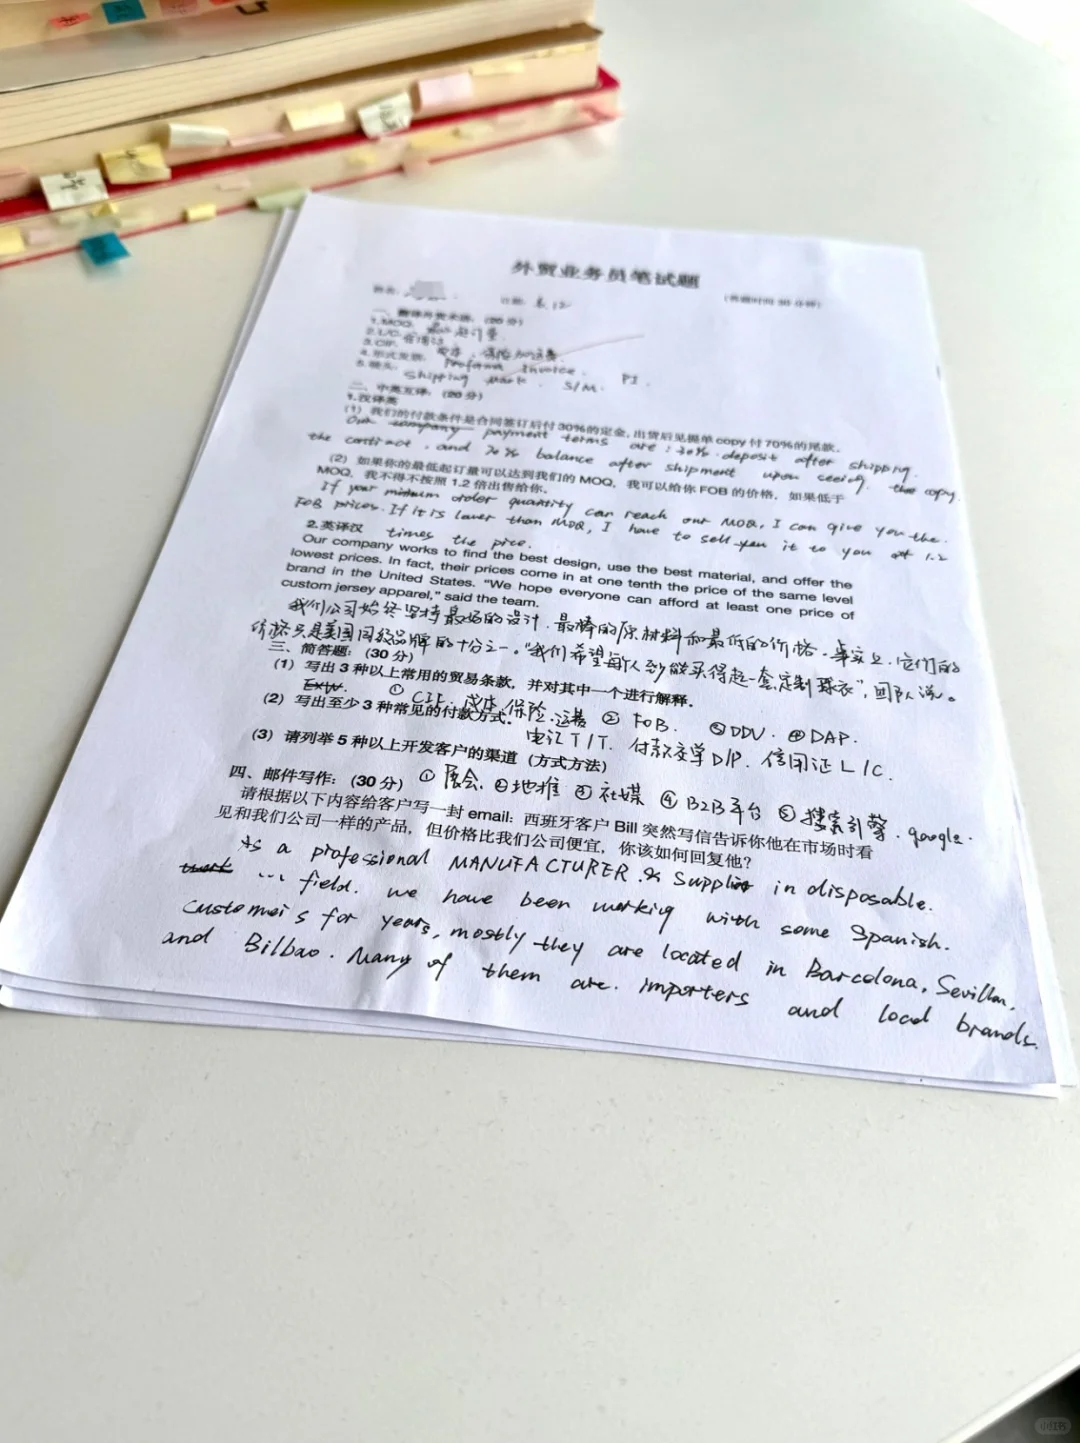 外贸业务员笔试题
姓名: 日期: 8.12 (答题时间 30 分钟)
一、翻译外贸术语: (20 分)
1.MOQ: 最小起订量
2.L/C: 信用证
3.CIF: 成本, 保险加运费
4.形式发票: Proforma Invoice. PI.
5.唛头: Shipping Mark. S/M.
二、中英互译: (20 分)
1.汉译英
(1) 我们的付款条件是合同签订后付30%的定金, 出货后见提单 copy 付 70%的尾款。
Our company payment terms are: 30% deposit after shipping.
the contract, and 70% balance after shipment upon seeing. the copy.
(2) 如果你的最低起订量可以达到我们的 MOQ, 我可以给你 FOB 的价格, 如果低于
MOQ, 我不得不按照 1.2 倍出售给你.
If your minimum order quantity can reach our MOQ, I can give you the.
FOB prices. If it is lower than MOQ, I have to sell you it to you at 1.2
times the price.
2.英译汉
Our company works to find the best design, use the best material, and offer the
lowest prices. In fact, their prices come in at one tenth the price of the same level
brand in the United States. "We hope everyone can afford at least one price of
custom jersey apparel," said the team.
我们公司始终坚持最好的设计, 最棒的原材料和最低的价格。事实上, 它们的
价格只是美国同级品牌的十分之一。"我们希望每个人都能买得起一套定制球衣", 团队说。
三、简答题: (30 分)
(1) 写出 3 种以上常用的贸易条款, 并对其中一个进行解释.
EXW. ① CIF. 成本.保险.运费 ② FOB. ③ DDU. ④ DAP.
(2) 写出至少 3 种常见的付款方式.
电汇 T/T. 付款交单 D/P. 信用证 L/C.
(3) 请列举 5 种以上开发客户的渠道 (方式方法)
① 展会. ② 地推 ③ 社媒 ④ B2B平台 ⑤ 搜索引擎. google.
四、邮件写作: (30 分)
请根据以下内容给客户写一封 email: 西班牙客户 Bill 突然写信告诉你他在市场时看
见和我们公司一样的产品, 但价格比我们公司便宜, 你该如何回复他?
As a professional MANUFACTURER & Supplier in disposable.
... field. we have been working with some Spanish.
customers for years, mostly they are located in Barcelona, Sevilla,
and Bilbao. Many of them are. importers and local brands.
小红书